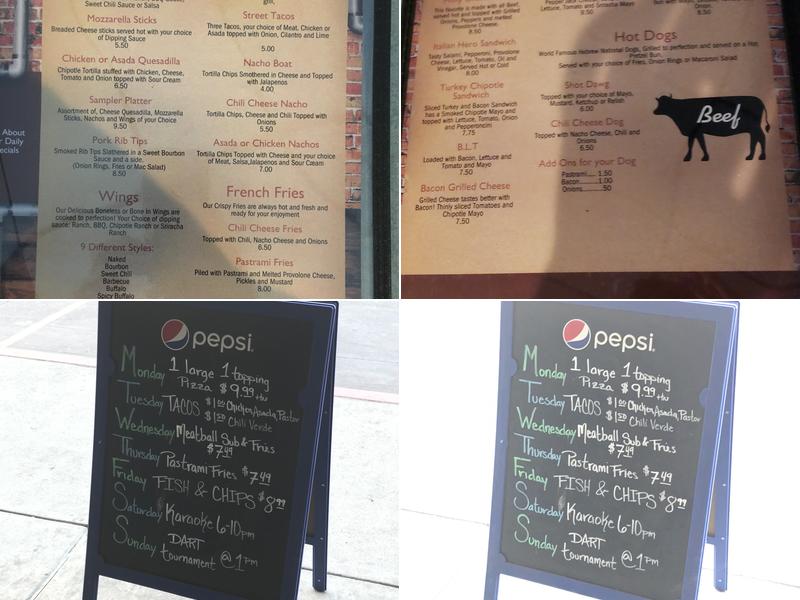 Sweet Chili Sauce or Salsa
Mozzarella Sticks
Breaded Cheese sticks served hot with your choice
of Dipping Sauce
5.50
Chicken or Asada Quesadilla
Chipotle Tortilla stuffed with Chicken, Cheese,
Tomato and Onion topped with Sour Cream
6.50
Sampler Platter
Assortment of, Cheese Quesadilla, Mozzarella
Sticks, Nachos and Wings of your Choice
9.50
Pork Rib Tips
Smoked Rib Tips Slathered in a Sweet Bourbon
Sauce and a side.
(Onion Rings, Fries or Mac Salad)
8.50
Wings
Our Delicious Boneless or Bone in Wings are
cooked to perfection! Your Choice of dipping
sauce: Ranch, BBQ, Chipotle Ranch or Sriracha
Ranch
9 Different Styles:
Naked
Bourbon
Sweet Chili
Barbecue
Buffalo
Spicy Buffalo
About
Daily
ecials
grill,
Street Tacos
Three Tacos, your choice of Meat, Chicken or
Asada topped with Onion, Cilantro and Lime
5.00
Nacho Boat
Tortilla Chips Smothered in Cheese and Topped
with Jalapenos
4.00
Chili Cheese Nacho
Tortilla Chips, Cheese and Chili Topped with
Onions
5.50
Asada or Chicken Nachos
Tortilla Chips Topped with Cheese and your choice
of Meat, Salsa,Jalapenos and Sour Cream
7.00
French Fries
Our Crispy Fries are always hot and fresh and
ready for your enjoyment
Chili Cheese Fries
Topped with Chili, Nacho Cheese and Onions
6.50
Pastrami Fries
Piled with Pastrami and Melted Provolone Cheese,
Pickles and Mustard
8.00
This favorite is made with all Beef,
served hot and topped with Grilled
Onions, Peppers and melted
Provolone Cheese.
8.50
Italian Hero Sandwich
Tasty Salami, Pepperoni, Provolone
Cheese, Lettuce, Tomato, Oil and
Vinegar, Served Hot or Cold
8.00
Turkey Chipotle
Sandwich
Sliced Turkey and Bacon Sandwich
has a Smoked Chipotle Mayo and
topped with Lettuce, Tomato, Onion
and Pepperoncini
7.75
B.L.T
Loaded with Bacon, Lettuce and
Tomato and Mayo
7.50
Bacon Grilled Cheese
Grilled Cheese tastes better with
Bacon! Thinly sliced Tomatoes and
Chipotle Mayo
7.50
Lettuce, Tomato and Sriracha Mayo
8.50
Hot Dogs
World Famous Hebrew National Dogs, Grilled to perfection and served on a Hot
Pretzel Bun.
Served with your choice of Fries, Onion Rings or Macaroni Salad
Shot Dawg
Topped with your choice of Mayo,
Mustard, Ketchup or Relish
6.00
Chili Cheese Dog
Topped with Nacho Cheese, Chili and
Onions
6.50
Add Ons for your Dog
Pastrami..... 1.50
Bacon..........1.00
Onions.........50
Beef
pepsi
Monday 1 large 1 topping
Pizza $9.99 +tax
Tuesday TACOS $1.00 Chicken, Asada, Pastor
$1.50 Chili Verde
Wednesday Meatball Sub & Fries
$7.49
Thursday Pastrami Fries $7.49
Friday FISH & CHIPS $8.99
Saturday Karaoke 6-10pm
Sunday DART
tournament @ 1pm
pepsi
Monday 1 large 1 topping
Pizza $9.99 +tax
Tuesday TACOS $1.00 Chicken, Asada, Pastor
$1.50 Chili Verde
Wednesday Meatball Sub & Fries
$7.49
Thursday Pastrami Fries $7.49
Friday FISH & CHIPS $8.99
Saturday Karaoke 6-10pm
Sunday DART
tournament @ 1pm